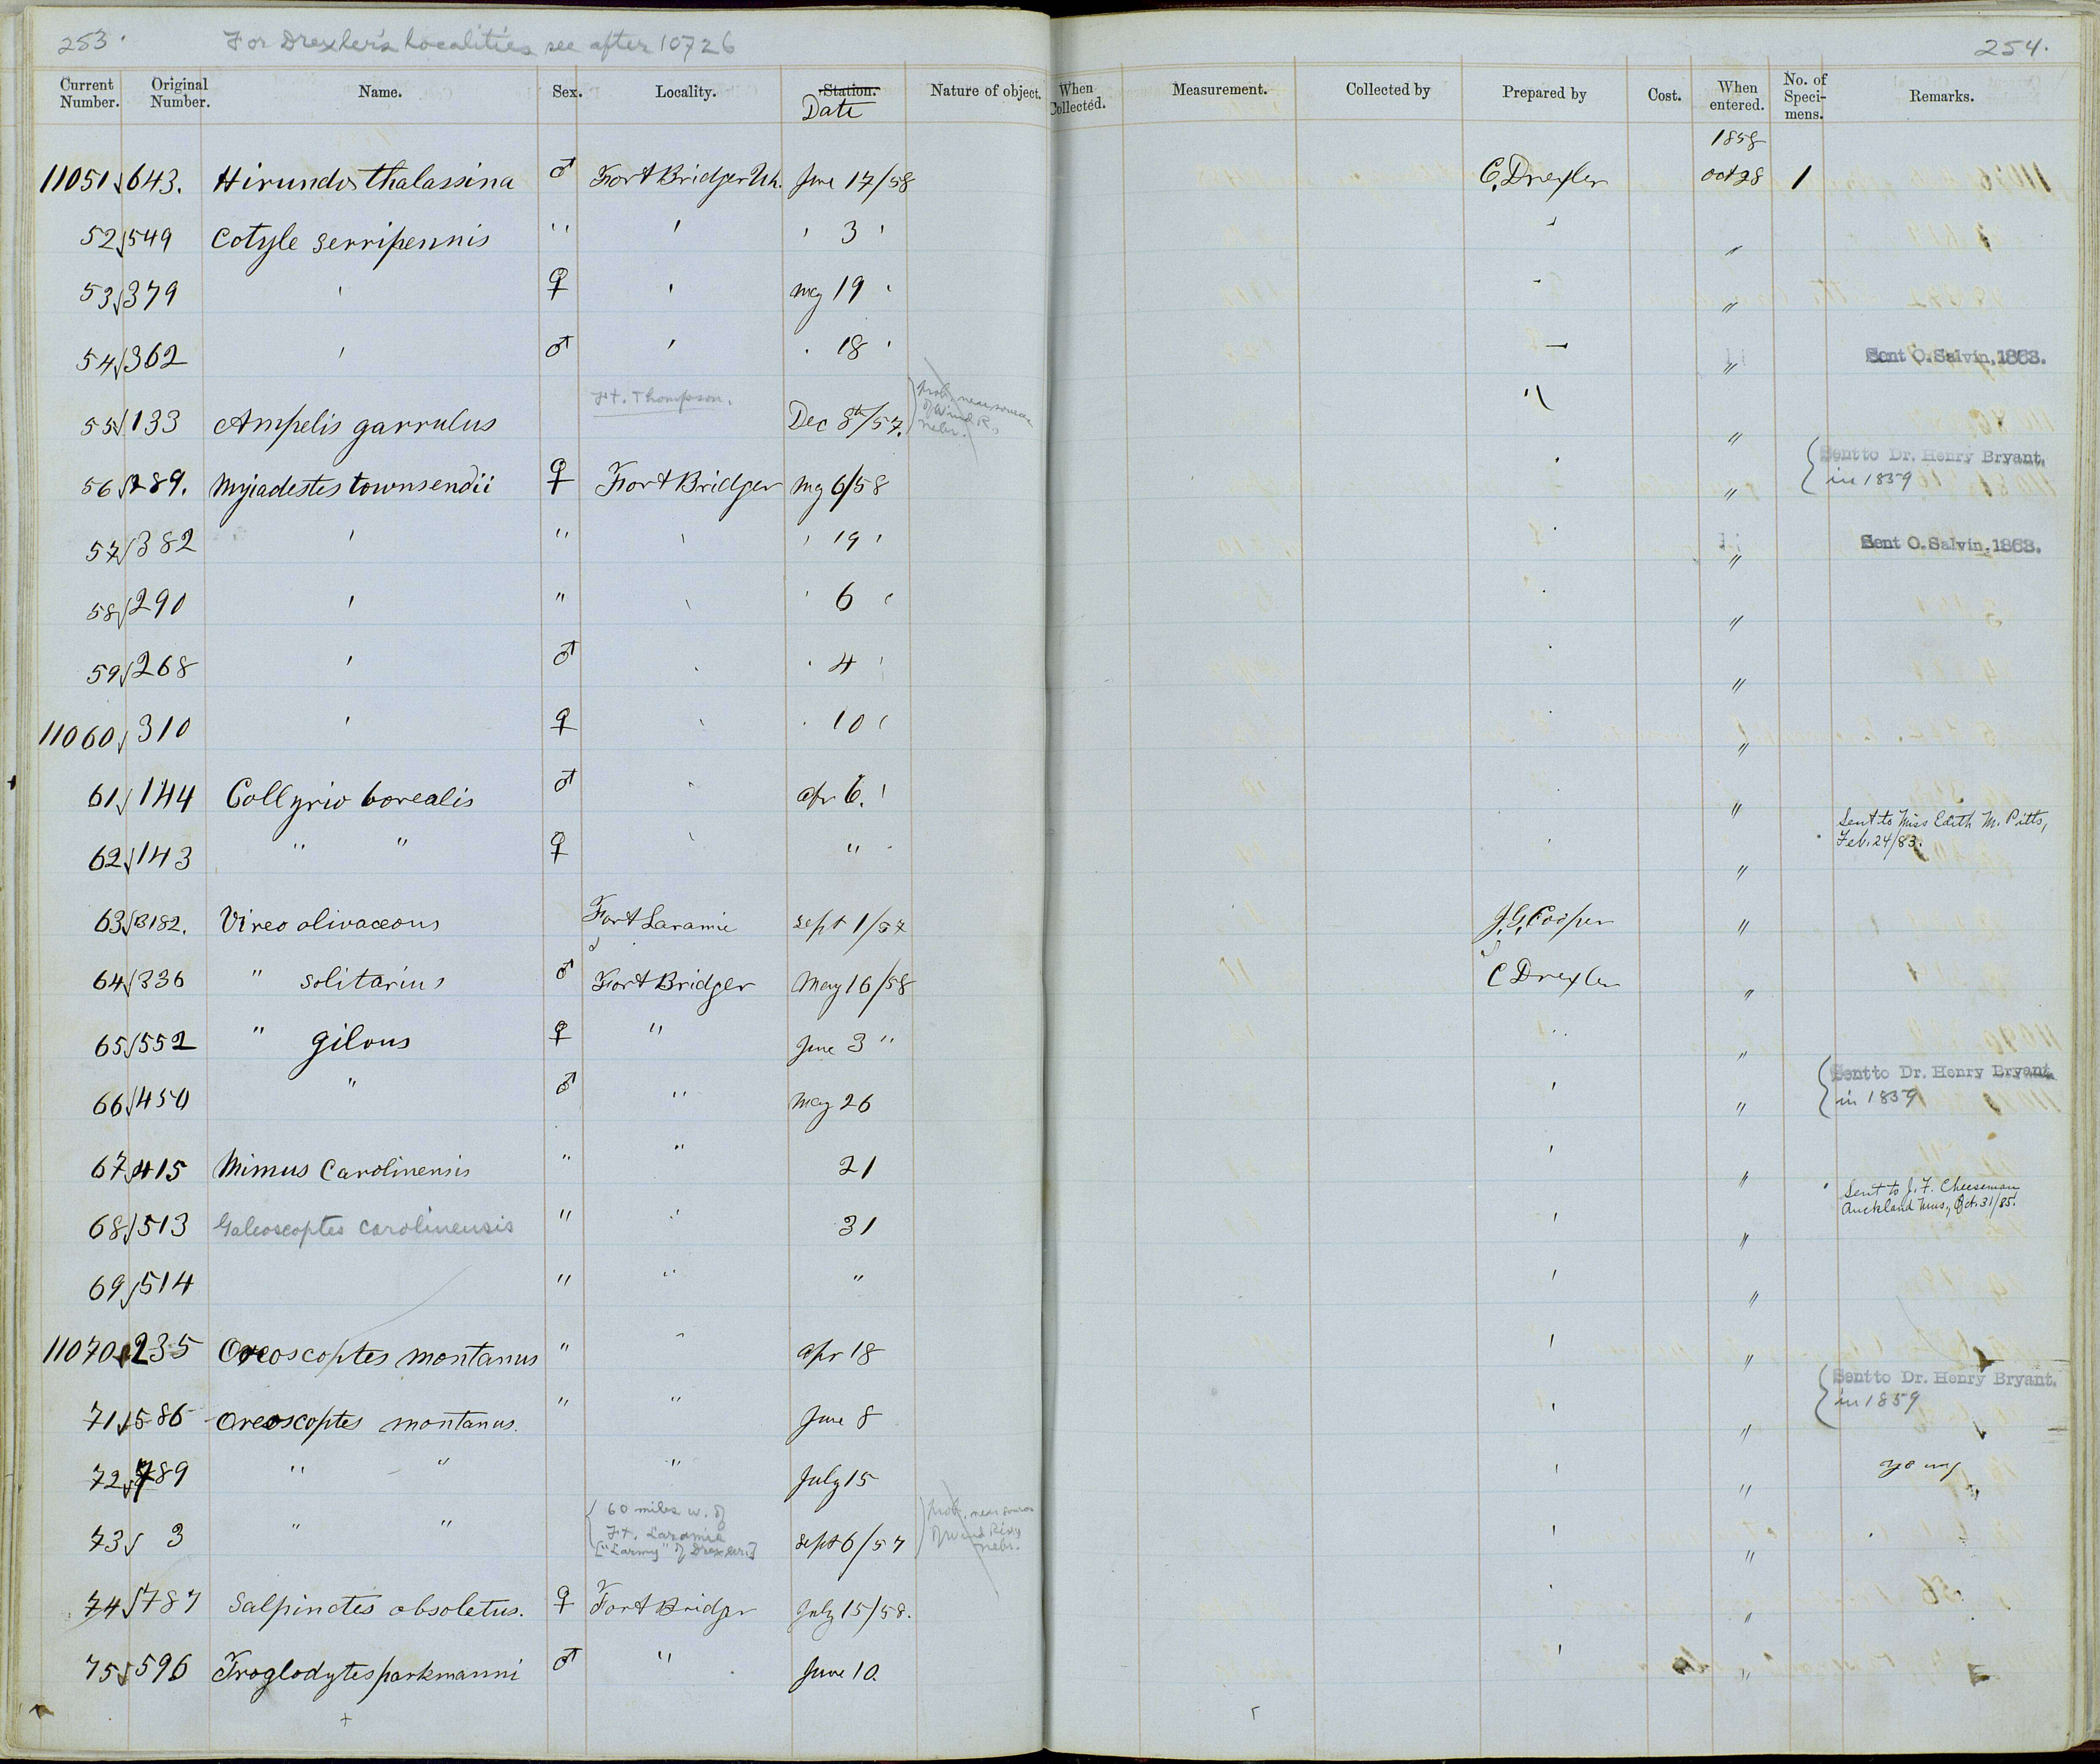 253. For Drexler's localities see after 10726 254.
Current Number. Original Number. Name. Sex. Locality. Station. Date Nature of object. When Collected. Measurement. Collected by Prepared by Cost. When entered. No. of Speci-mens. Remarks.
1858
11051 643. Hirundo thalassina ♂ Fort Bridger Uh. June 17/58 C. Drexler Oct 28 1
52 549 Cotyle serripennis " ' ' 3 ' ' "
53 379 ' ♀ ' May 19 ' ' "
54 362 ' ♂ ' ' 18 ' — " Sent O. Salvin, 1863.
55 133 Ampelis garrulus Ft. Thompson. Dec 8th/57. prob. near source of Wind R. Nebr. " "
56 289. Myiadestes townsendii ♀ Fort Bridger My 6/58 ' " Sent to Dr. Henry Bryant. in 1859
57 382 ' " ' ' 19 ' ' " Sent O. Salvin, 1863.
58 290 ' " ' ' 6 ' ' "
59 268 ' ♂ ' ' 4 ' ' "
11060 310 ' ♀ ' ' 10 ' ' "
61 144 Collyrio borealis ♂ ' Apr 6. ' ' "
62 143 " " ♀ ' " ' ' " Sent to Miss Edith M. Pitts, Feb. 24/83.
63 B182. Vireo olivaceous Fort Laramie Sept 1/57 J. G. Cooper "
64 336 " solitarius ♂ Fort Bridger May 16/58 C Drexler "
65 552 " gilvus ♀ " June 3 " " "
66 450 " ♂ " May 26 ' " Sent to Dr. Henry Bryant in 1859
67 415 Mimus Carolinensis " " 21 ' "
68 513 Galeoscoptes carolinensis " " 31 ' " Sent to J. F. Cheeseman Auckland Mus., Oct. 31/85.
69 514 " " " ' "
11070 235 Oreoscoptes montanus " " Apr 18 ' "
71 586 Oreoscoptes montanus. " " June 8 ' " Sent to Dr. Henry Bryant. in 1859
72 789 " " " July 15 ' " young
73 3 " " 60 miles w. of Ft. Laramie ["Larmy" of Drexler] Sept 6/57 prob. near source of Wind River Nebr. ' "
74 787 Salpinctes obsoletus. ♀ Fort Bridger July 15/58. ' "
75 596 Troglodytes parkmanni ♂ " June 10. ' "